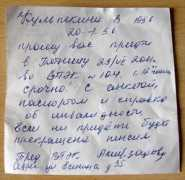 Кульпикина В 1936
20-1.56
прошу вас придти
в Пятницу 23/VI 2011
во ВТЭК № 104. с 12 часов
срочно с анкетой,
паспортом и справка
об инвалидности
если не придёте будет
прекращена пенсия
Пред ВТЭК